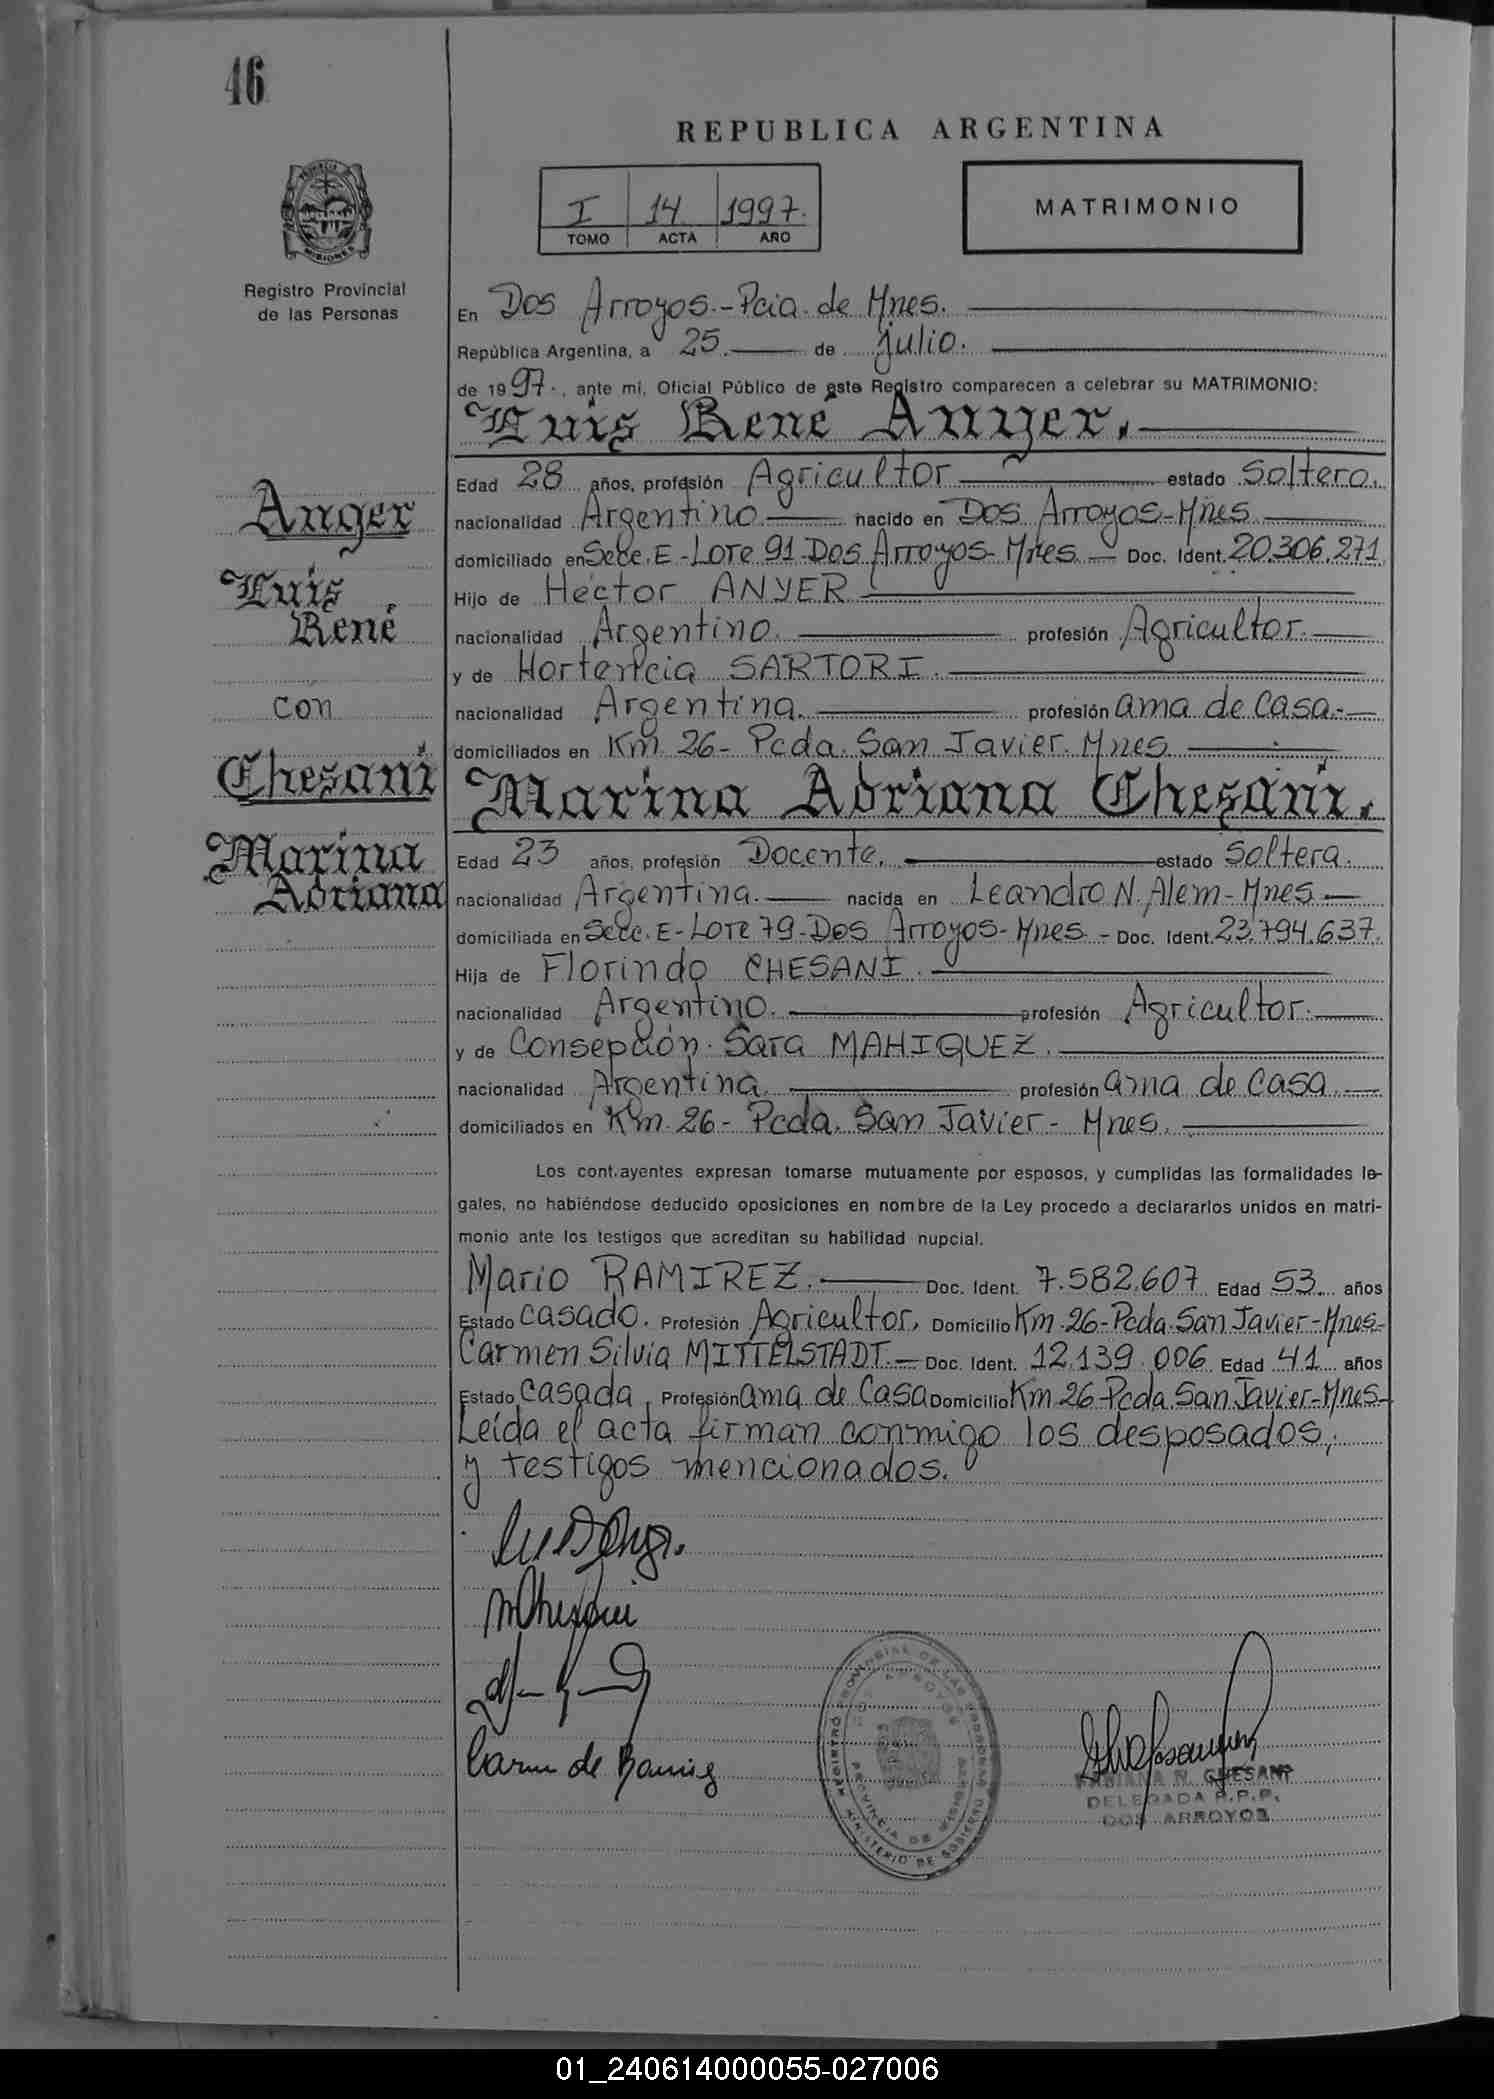 46
REPUBLICA ARGENTINA
I 14 1997.
TOMO ACTA AÑO
MATRIMONIO
Registro Provincial
de las Personas
En Dos Arroyos.-Pcia. de Mnes.
República Argentina, a 25. de julio.
de 1997., ante mi, Oficial Público de este Registro comparecen a celebrar su MATRIMONIO:
Luis René Anger.
Edad 28 años, profesión Agricultor estado Soltero.
Anger
nacionalidad Argentino nacido en Dos Arroyos-Mnes
domiciliado en Secc. E-Lote 91-Dos Arroyos-Mnes. Doc. Ident. 20.306.271
Luis
Hijo de Héctor ANYER
René
nacionalidad Argentino. profesión Agricultor.
y de Hortencia SARTORI.
con
nacionalidad Argentina. profesión ama de casa.-
domiciliados en Km. 26- Pcda. San Javier. Mnes
Chesani
Marina Adriana Chesani.
Marina
Edad 23 años, profesión Docente. estado Soltera.
Adriana
nacionalidad Argentina. nacida en Leandro N. Alem-Mnes
domiciliada en Secc. E-Lote 79-Dos Arroyos-Mnes - Doc. Ident. 23.794.637.
Hija de Florindo CHESANI.
nacionalidad Argentino. profesión Agricultor.
y de Consepción Sara MAHIQUEZ.
nacionalidad Argentina. profesión ama de casa.
domiciliados en Km. 26- Pcda. San Javier- Mnes.
Los cont.ayentes expresan tomarse mutuamente por esposos, y cumplidas las formalidades le-
gales, no habiéndose deducido oposiciones en nombre de la Ley procedo a declararlos unidos en matri-
monio ante los testigos que acreditan su habilidad nupcial.
Mario RAMIREZ. Doc. Ident. 7.582.607 Edad 53 años
Estado casado. Profesión Agricultor, Domicilio Km.26-Pcda.San Javier-Mnes-
Carmen Silvia MITTELSTADT.- Doc. Ident. 12.139.006 Edad 41 años
Estado casada, Profesión ama de casa Domicilio Km 26-Pcda.San Javier-Mnes-
Leída el acta firman conmigo los desposados,
y testigos mencionados.
REGISTRO PROVINCIAL DE LAS PERSONAS
DOS ARROYOS
PROVINCIA DE MISIONES
MINISTERIO DE GOBIERNO
FABIANA N. CHESANI
DELEGADA R.P.P.
DOS ARROYOS
01_240614000055-027006